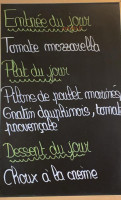 Entrée du jour
Tomate mozzarella
Plat du jour
Pilons de poulet marinés
Gratin dauphinois, tomate
provençale
Dessert du jour
Choux à la crème